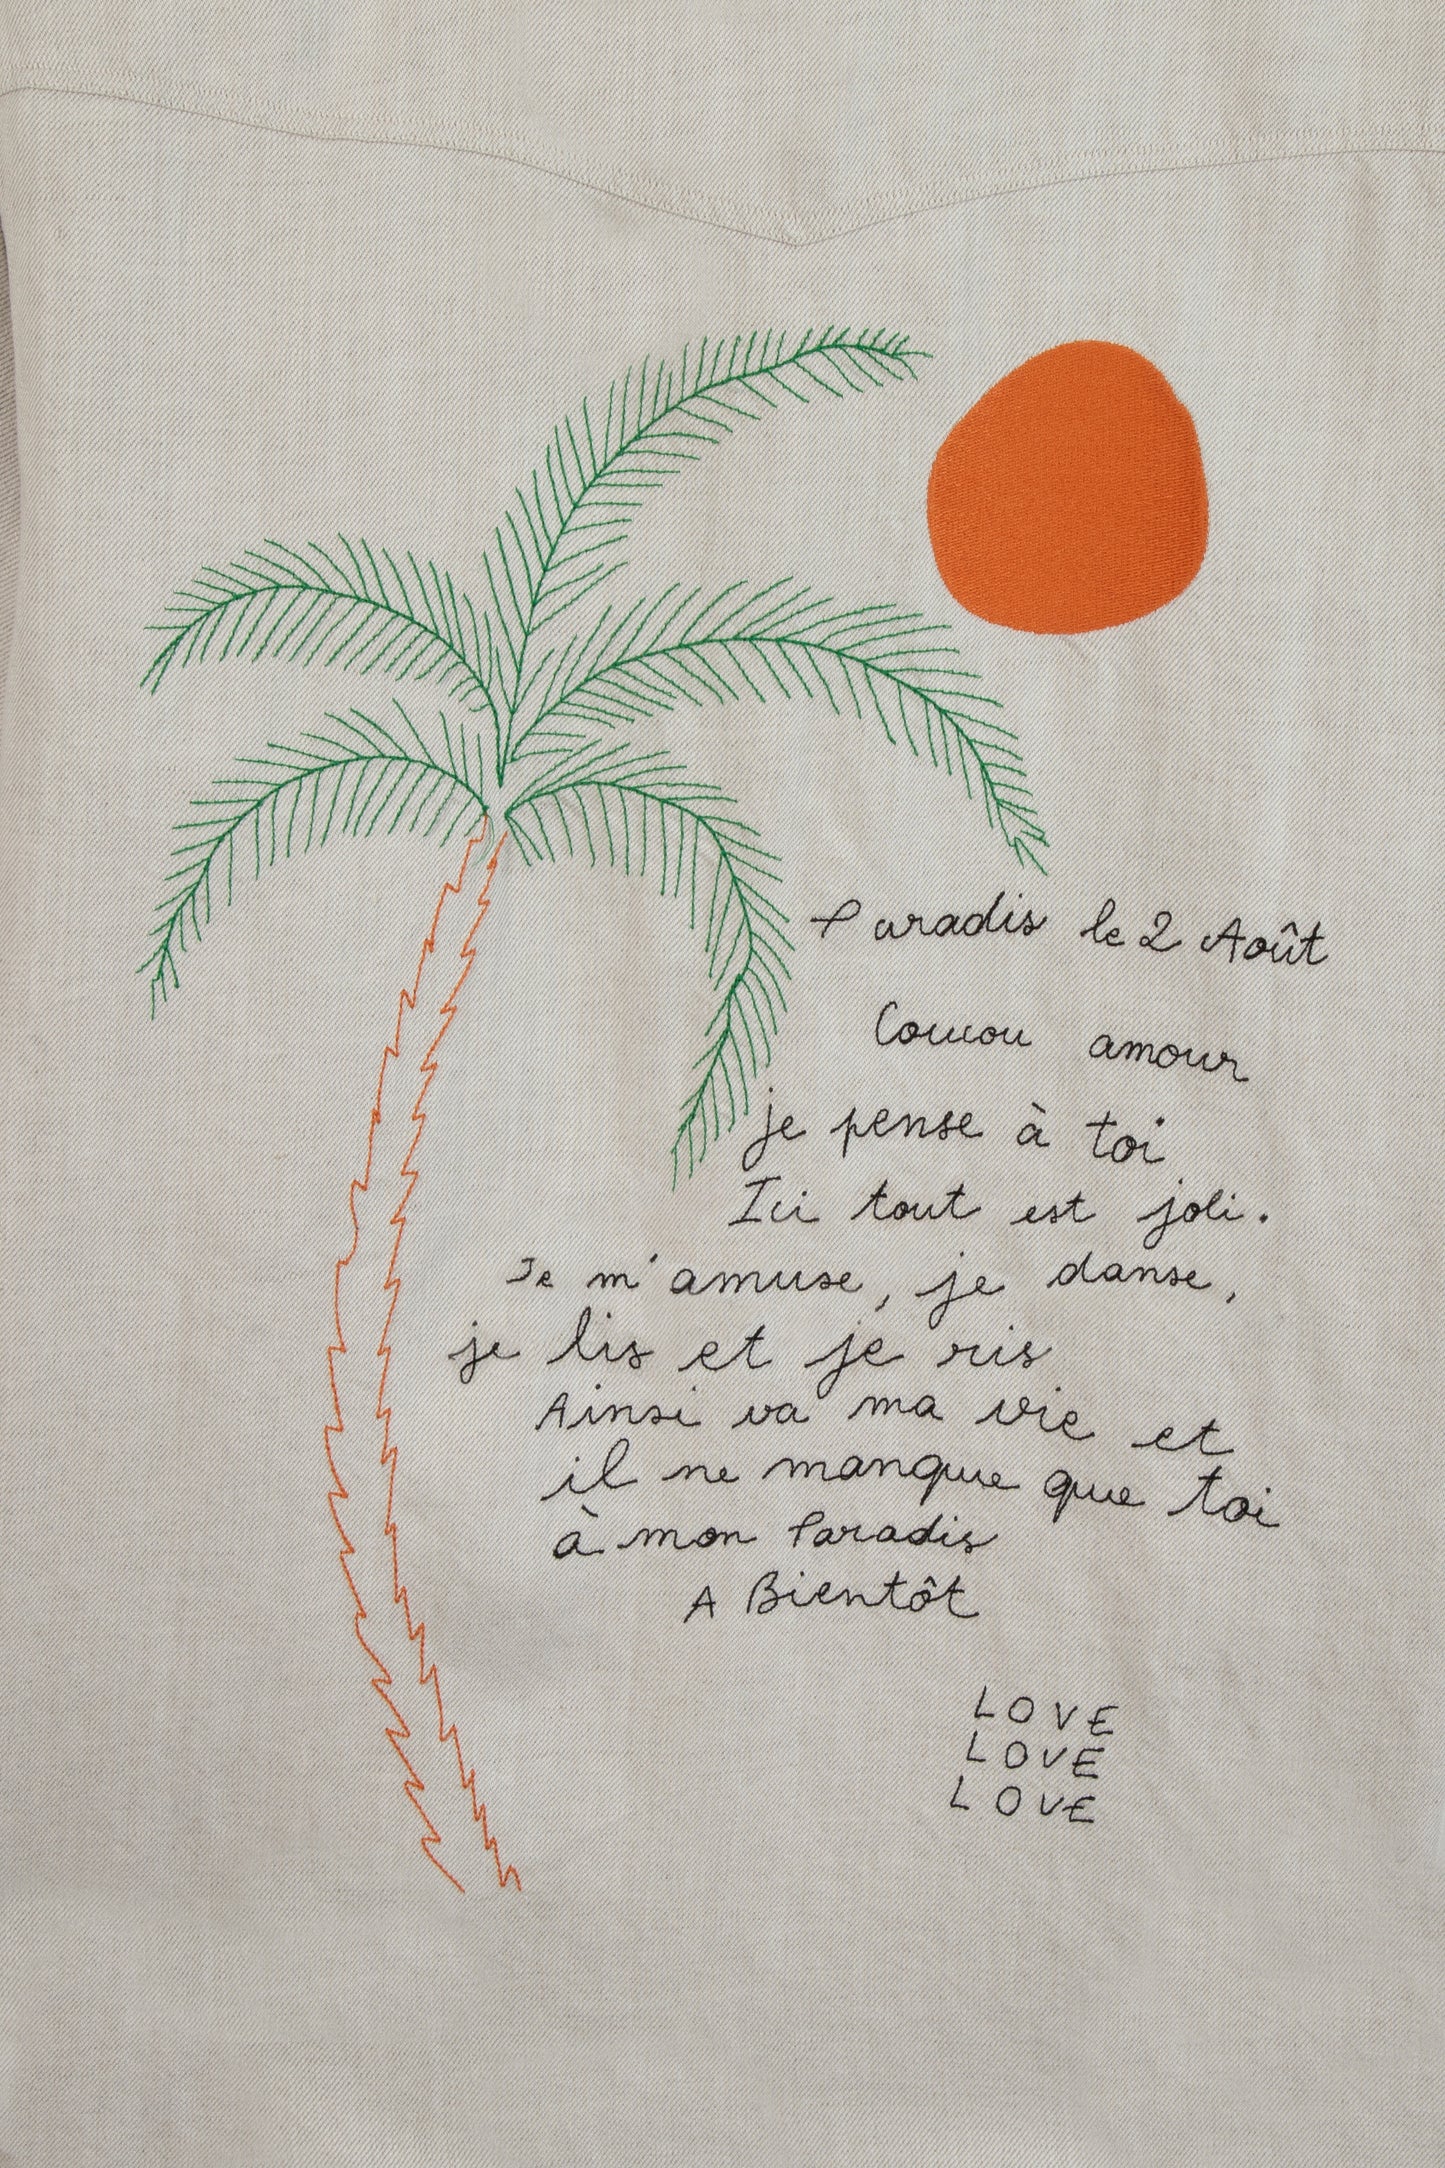 Paradis le 2 Août
Coucou amour
je pense à toi
Ici tout est joli.
Je m'amuse, je danse,
je lis et je ris
Ainsi va ma vie et
il ne manque que toi
à mon Paradis
A Bientôt
LOVE
LOVE
LOVE